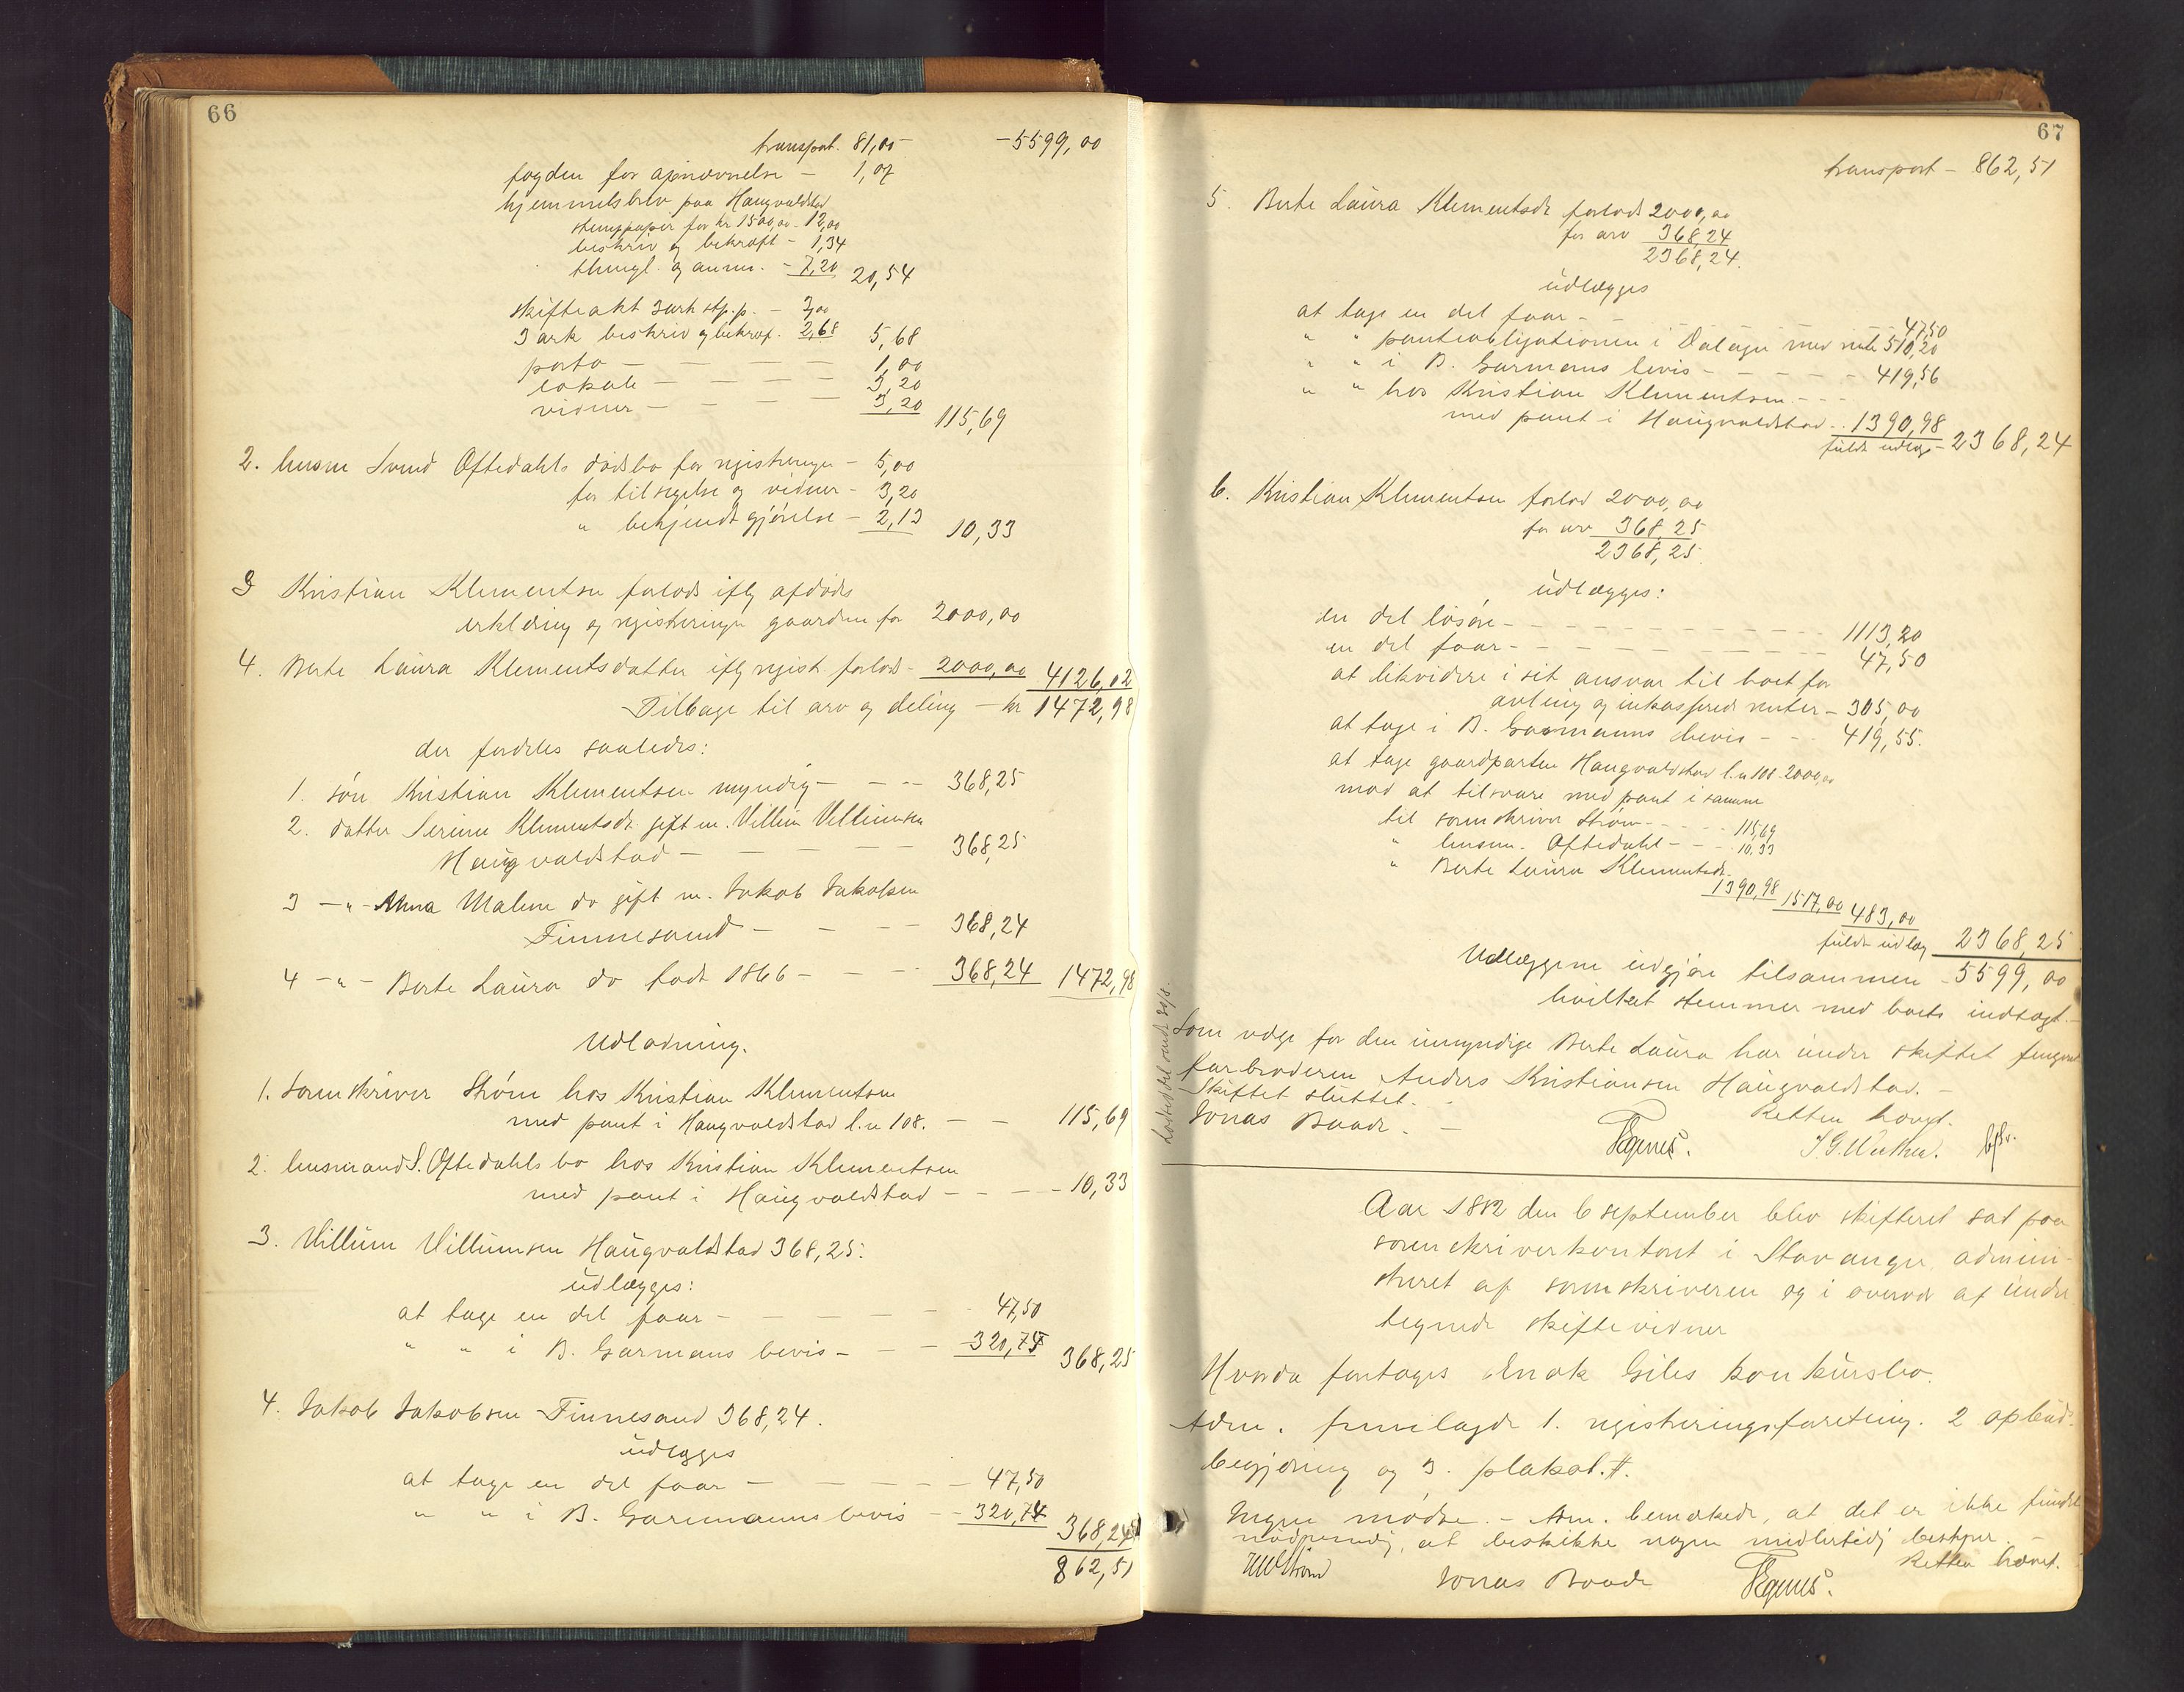 66
transport. 81,00 - 5599,00
fogden for opnævnelse - 1,07
hjemmelsbrev paa Haugvaldstad
stemppapir for kr 1500,00 - 12,00
beskriv og bekræft - 1,34
thingl. og anm. - 7,20 20,54
skifteakt 3 ark stp.p. - 3,00
3 ark beskriv og bekræf. 2,68 5,68
porto - - - 1,00
lokale - - - - 3,20
vidner - - - - 3,20 115,69
2. lensm Svend Oftedahls dødsbo for registeringen - 5,00
for tilsigelse og vidner - 3,20
" bekjendtgjørelse - 2,13 10,33
3 Kristian Klementsen forlods iflg afdødes
erklæring og registeringen gaarden for 2000,00
4. Berte Laura Klementsdatter iflg regist. forlods - 2000,00 4126,02
Tilbage til arv og deling - kr 1472,98
der fordeles saaledes:
1. søn Kristian Klementsen myndig - - - 368,25
2. datter Serine Klementsdr. gift m. Villum Villumsen
Haugvaldstad - - - - - 368,25
3 - " - Anna Malene do gift m. Jakob Jakobsen
Finnesand - - - - 368,24
4 - " - Berte Laura do født 1866 - - - - 368,24 1472,98
Udlodning.
1. Sorenskriver Strøm hos Kristian Klementsen
med pant i Haugvaldstad l.n 108. - - 115,69
2. lensmand S. Oftedahls bo hos Kristian Klementsen
med pant i Haugvaldstad - - - - 10,33
3. Villum Villumsen Haugvaldstad 368,25.
udlægges:
at tage en del faar - - - - - 47,50
" " i B. Garmans bevis - - - 320,75 368,25
4. Jakob Jakobsen Finnesand 368,24.
udlægges
at tage en del faar - - - - - 47,50
" " i B. Garmanns bevis - - 320,74 368,24
862,51
67
transport - 862,51
5. Berte Laura Klementsdr forlods 2000,00
for arv 368,24
2368,24.
udlægges
at tage en del faar - - - - - - - - 47,50
" " pantobligationen i Dalager med rente 510,20
" " i B. Garmans bevis - - - - - - 419,56
" " hos Kristian Klementsen - - -
med pant i Haugvaldstad - - 1390,98
fuldt udlæg - 2368,24
6. Kristian Klementsen forlod 2000,00
for arv 368,25
2368,25.
udlægges:
en del løsøre - - - - - - - - - - 1113,20
en del faar - - - - - - - - - - 47,50
at likvidere i sit ansvar til boet for
avling og inkasserede renter - 305,00
at tage i B. Garmanns bevis - - - 419,55.
at tage gaardparten Haugvaldstad l.n 108. 2000,00
mod at tilsvare med pant i samme
til sorenskriver Strøm - - - - - 115,69
" lensm. Oftedahl - - - 10,33
" Berte Laura Klementsdr.
1390,98 1517,00 483,00
fuldt udlæg 2368,25
Udlæggene udgjøre tilsammen - 5599,00
hvilket stemmer med boets indtægt. -
Som værge for den umyndige Berte Laura har under skiftet fungeret
farbroderen Anders Kristiansen Haugvaldstad. -
Skiftet sluttet. - Retten hævet.
Jonas Baade. -
Aar 1882 den 6 september blev skifteret sat paa
sorenskriverkontoret i Stavanger, admini-
streret af sorenskriveren og i overvær af under
tegnede skiftevidner
Hvorda foretoges Enok Giles konkursbo.
Adm. fremlagde 1. registeringsforretning. 2 opbuds-
begjæring og 3. plakat. #.
Ingen mødte. - Adm. bemærkede, at det er ikke fundet
nødvendig, at beskikke nogen midlertidig bestyrer. -
Retten hævet.
Jonas Baade